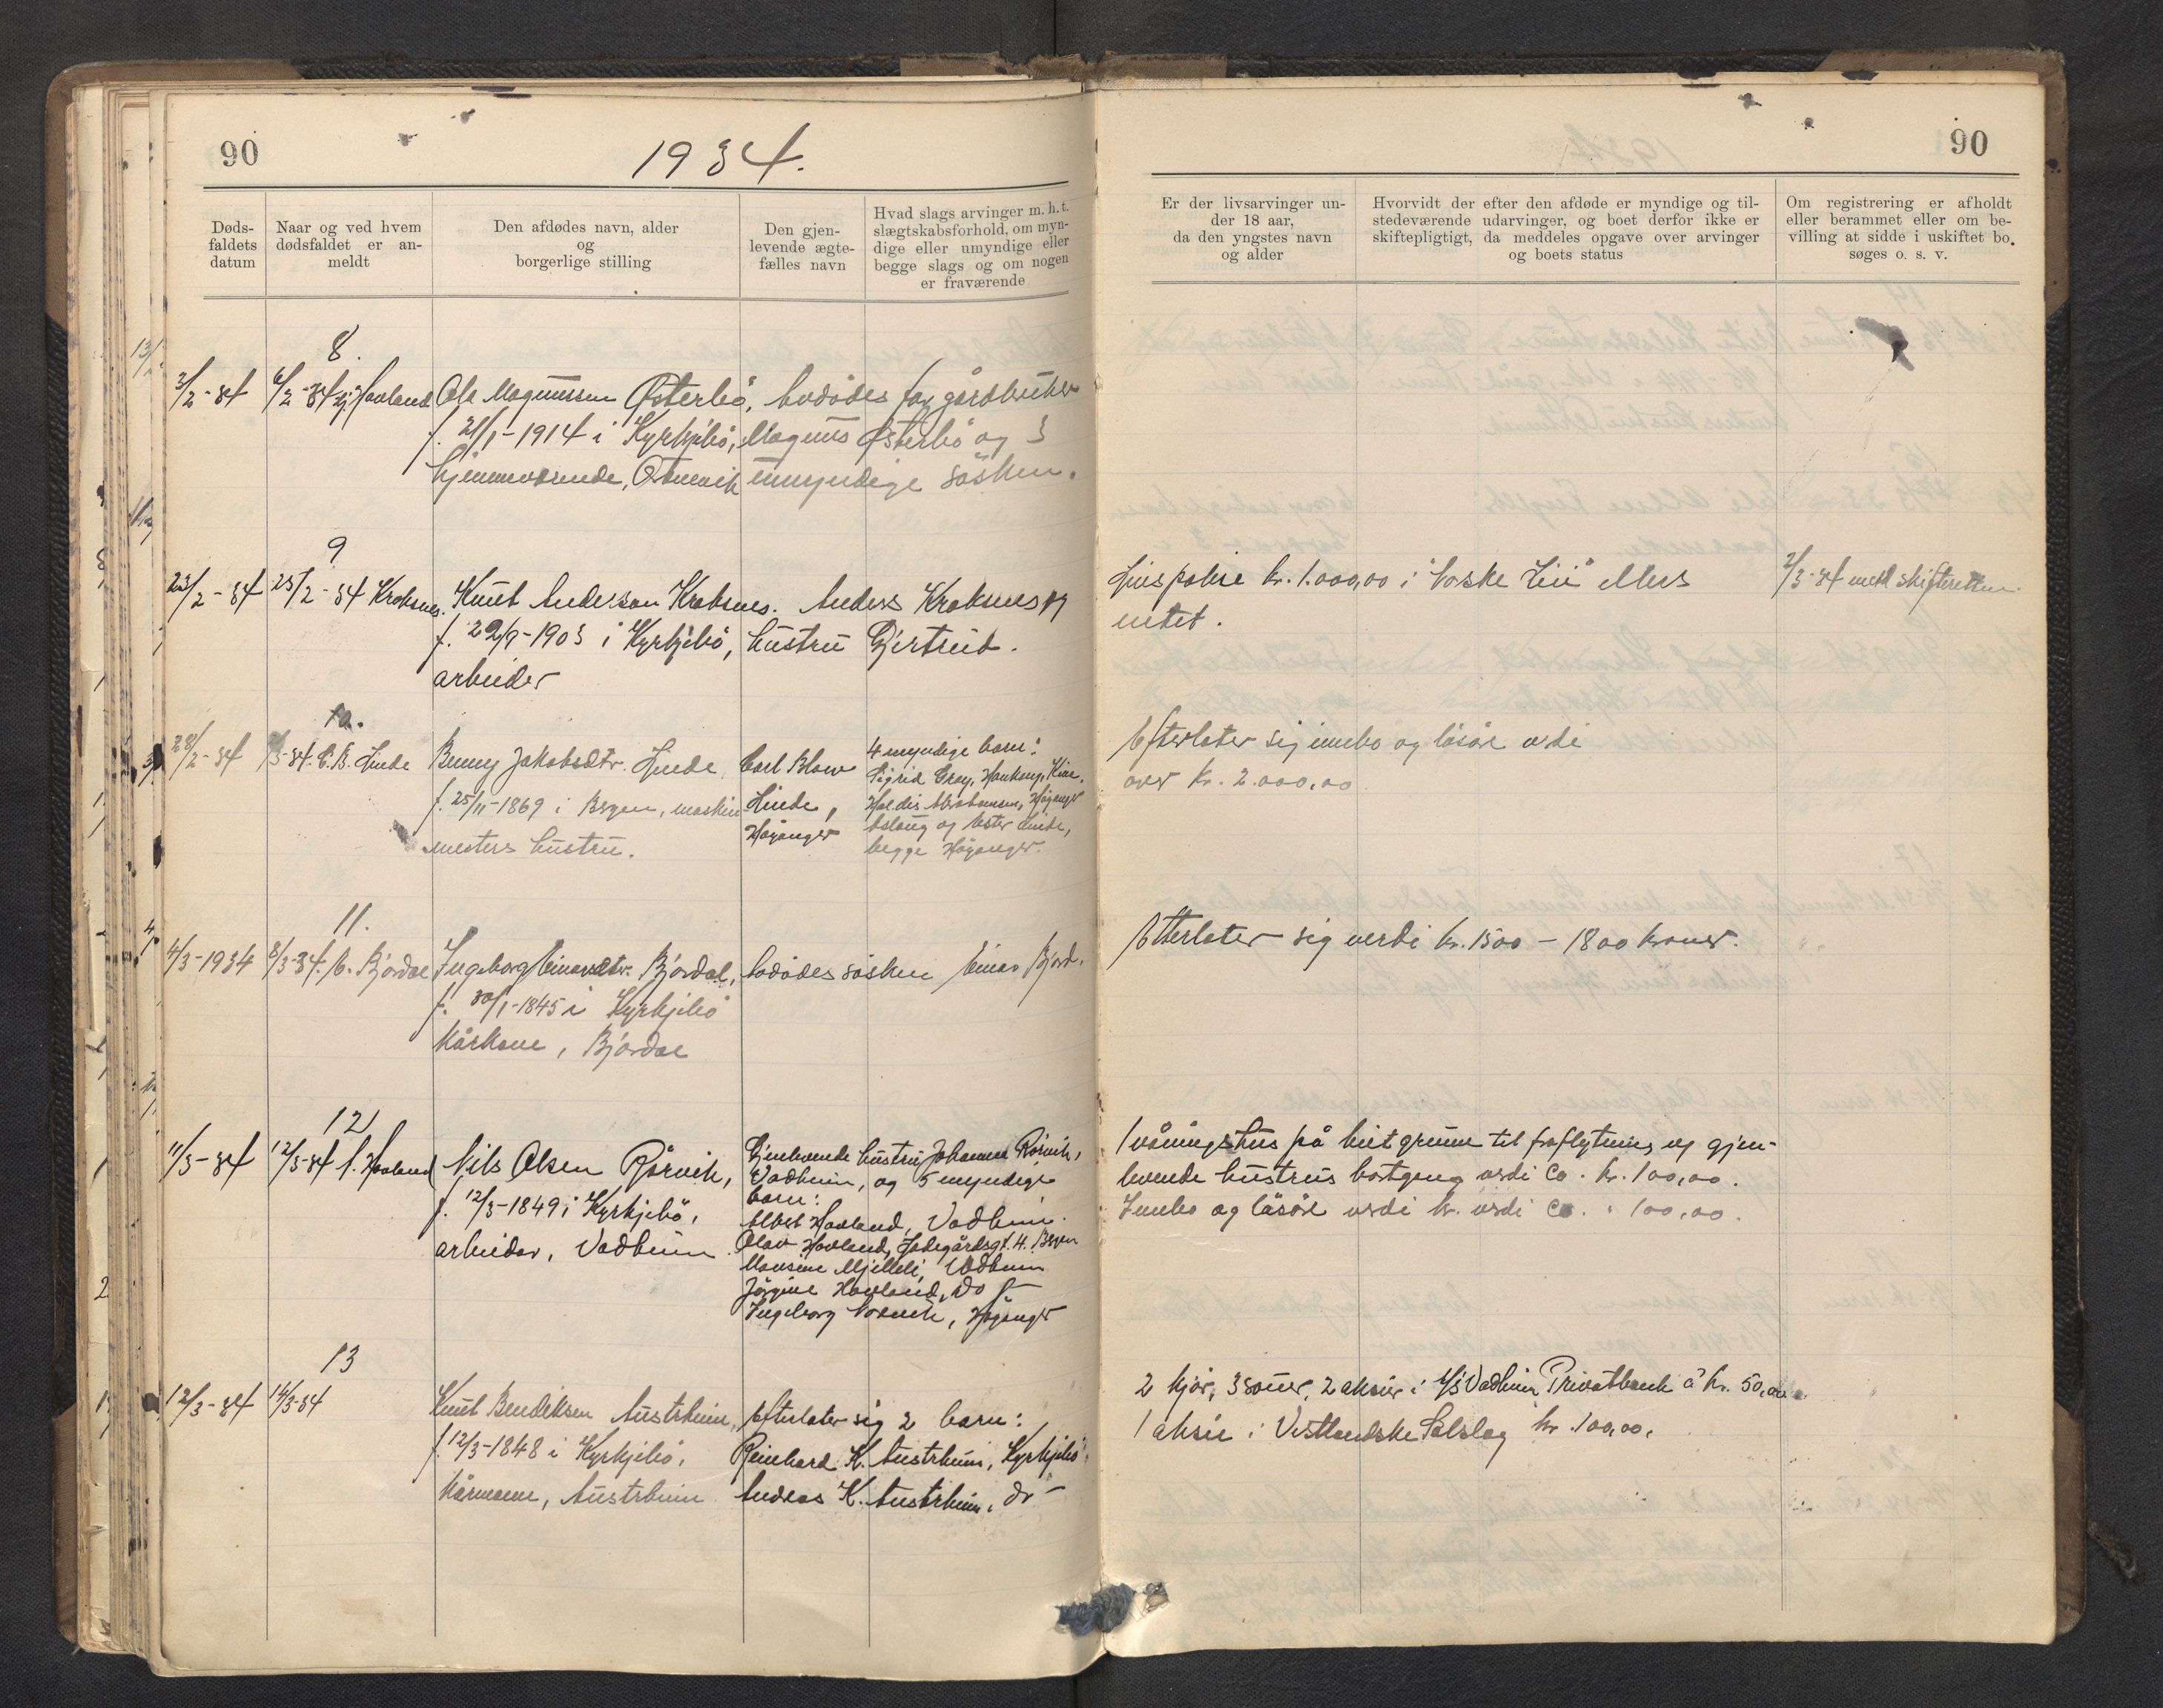 90
1934.
Døds-
faldets
datum
Naar og ved hvem
dødsfaldet er an-
meldt
Den afdødes navn, alder
og
borgerlige stilling
Den gjen-
levende ægte-
fælles navn
Hvad slags arvinger m. h. t.
slægtskabsforhold, om myn-
dige eller umyndige eller
begge slags og om nogen
er fraværende
8.
3/2-34 6/2-34 Havland Ole Magnussen Østerbö, avdödes far gårdbruker
f. 21/1-1914 i Kyrkjebö, Magnus Østerbö og 3
hjemmeværende, umyndige sösken.
9
23/2-34 25/2-34 Kroksnes. Knut Anderson Kroksnes. Anders Kroksnes og
f. 22/9-1903 i Kyrkjebö, hustru Gjertrud.
arbeider
10.
28/2-34 /3-34. C.B. Linde Benny Jakobsdtr. Linde
f. 25/11-1869 i Bergen, maskin
mesters hustru.
Carl Blaw
Linde,
Höyanger
4 myndige barn:
Sigrid Grey, Hankong, Kina.
Haldis Abrahamsen, Höyanger
Aslaug og Ester Linde,
begge Höyanger.
11.
4/3-1934 8/3-34. E. Bjordal Ingeborg Einarsdtr. Bjordal, avdödes sösken Einar Bjord.
f. 30/1-1845 i Kyrkjebö
Kårkone, Bjordal
12
11/3-34 12/3-34 A. Havland Nils Olsen Rörvik,
f. 12/3-1849 i Kyrkjebö,
arbeider, Vadheim.
Gjenlevende hustru Johanna Rörvik,
Vadheim, og 5 myndige
barn:
Albert Havland, Vadheim.
Olav Havland, 4. Bergen
Mjelleli, Vadheim
Jörgine Havland, do
Ingeborg, Höyanger
13
12/3-34 14/3-34
Knut Bendiksen Austrheim,
f. 12/3-1848 i Kyrkjebö,
Kårmann, Austrheim
Efterlater sig 2 barn:
Reinhard K. Austrheim, Kyrkjebö
Andreas K. Austrheim, do -
90
Er der livsarvinger un-
der 18 aar,
da den yngstes navn
og alder
Hvorvidt der efter den afdøde er myndige og til-
stedeværende udarvinger, og boet derfor ikke er
skiftepligtigt, da meddeles opgave over arvinger
og boets status
Om registrering er afholdt
eller berammet eller om be-
villing at sidde i uskiftet bo
søges o. s. v.
Livspolise kr. 1.000,00 i "Norske Liv" ellers
intet.
2/3-34 meld skifteretten.
Efterlater sig innbo og lösöre verdi
over kr. 2.000,00
Etterlater sig verdi kr. 1500 - 1800 kroner.
1 våningshus på leiet grunn til fraflytning og gjen-
levende hustrus bortgang verdi ca. kr. 100,00.
Innbo og lösöre verdi kr. verdi ca. " 100,00.
2 kjör, 3 souer, 2 aksier i A/S Vadheim Privatbank á kr. 50,00
1 aksie i Vestlandske Salslag kr. 100,00.